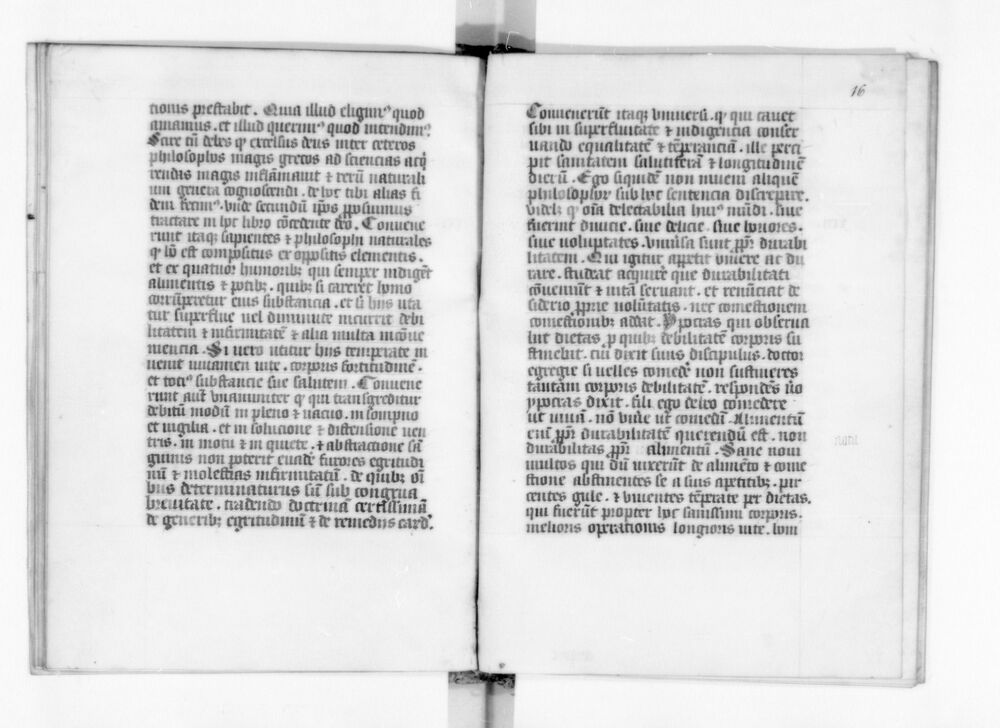 tionis prestabit. Quia illud eligimꝰ quod
amamus. et illud querimꝰ quod intendimꝰ
Scire tñ debes ꝙ excelsus deus inter ceteros
philosophos magis grecos ad sciencias acq̇
rendas magis inflāmauit ⁊ rerū naturali
um genera cognoscendi. de hoc tibi alias fi
dem fecimꝰ. vnde secundū ip̄os ꝓposuimus
tractare in hoc libro cōcedente deo. Conuene
runt itaqꝫ sapientes ⁊ philosophi naturales
ꝙ hō est compositus ex oppositis elementis.
et ex quatuor humoribꝫ qui semper indigēt
alimentis ⁊ potibꝫ. quibꝫ si careret homo
corrūperetur eius substancia. et si hijs uta
tur superflue uel diminute incurrit debi
litatem ⁊ infirmitatē ⁊ alia multa incōue
niencia. Si vero utitur hijs temperate in
uenit iuuamen uite. corporis fortitudinē.
et tociꝰ substancie sue salutem. Conuene
runt aut̄ vnanimiter ꝙ qui transgreditur
debitū modū in pleno ⁊ uacuo. in sompno
et uigilia. et in solucione ⁊ distensione uen
tris. in motu ⁊ in quiete. ⁊ abstractione sā
guinis non poterit euadē furores egritudi
nū ⁊ molestias infirmitatū. de quibꝫ oī
bus determinaturus sū sub congrua
breuitate. tradendo doctrinā certissimā
de generibꝫ egritudinū ⁊ de remedijs eard̕.
16
Conuenerūt itaqꝫ vniuersi. ꝙ qui cauet
sibi in superfluitate ⁊ indigencia conser
uando equalitatē ⁊ tēperanciā. ille perci
pit sanitatem salutiferā ⁊ longitudinē
dierū. Ego siquidē non inueni aliquē
philosophor̄ sub hoc sentencia discrepare.
videlꝫ ꝙ oīa delectabilia huiꝰ mūdi. siue
fuerint diuicie. siue delicie. siue honores.
siue uoluptates. vniuersa sunt ꝓpt̄ durabi
litatem. Qui igitur appetit viuere ac du
rare. studeat acquirē que durabilitati
cōueniunt ⁊ uitā seruant. et renūciat de
siderio ꝓprie uolūtatis. nec comestionem
comestionibꝫ addat. Ypocras qui obserua
bat dietas ꝑ quibꝫ debilitatē corporis su
stinebit. cui dixit suus discipulus. doctor
egregie si uelles comedē non sustineres
tantam corporis debilitatē. respondēs ū̊o
ypocras dixit. fili ego debeo comedere
ut uiuā. nō viuē ut comedā. Alimentū
eni ꝓpt̄ durabilitatē querendū est. non
durabilitas ꝓpt̄ alimentū. Sane noui
multos qui dū uixerūt de alimēto ⁊ come
stione abstinentes se a suis apetitibꝫ. par
centes gule. ⁊ viuentes tēperate per dietas.
qui fuerūt propter hoc sanissimi corporis.
melioris operationis longioris uite. boni